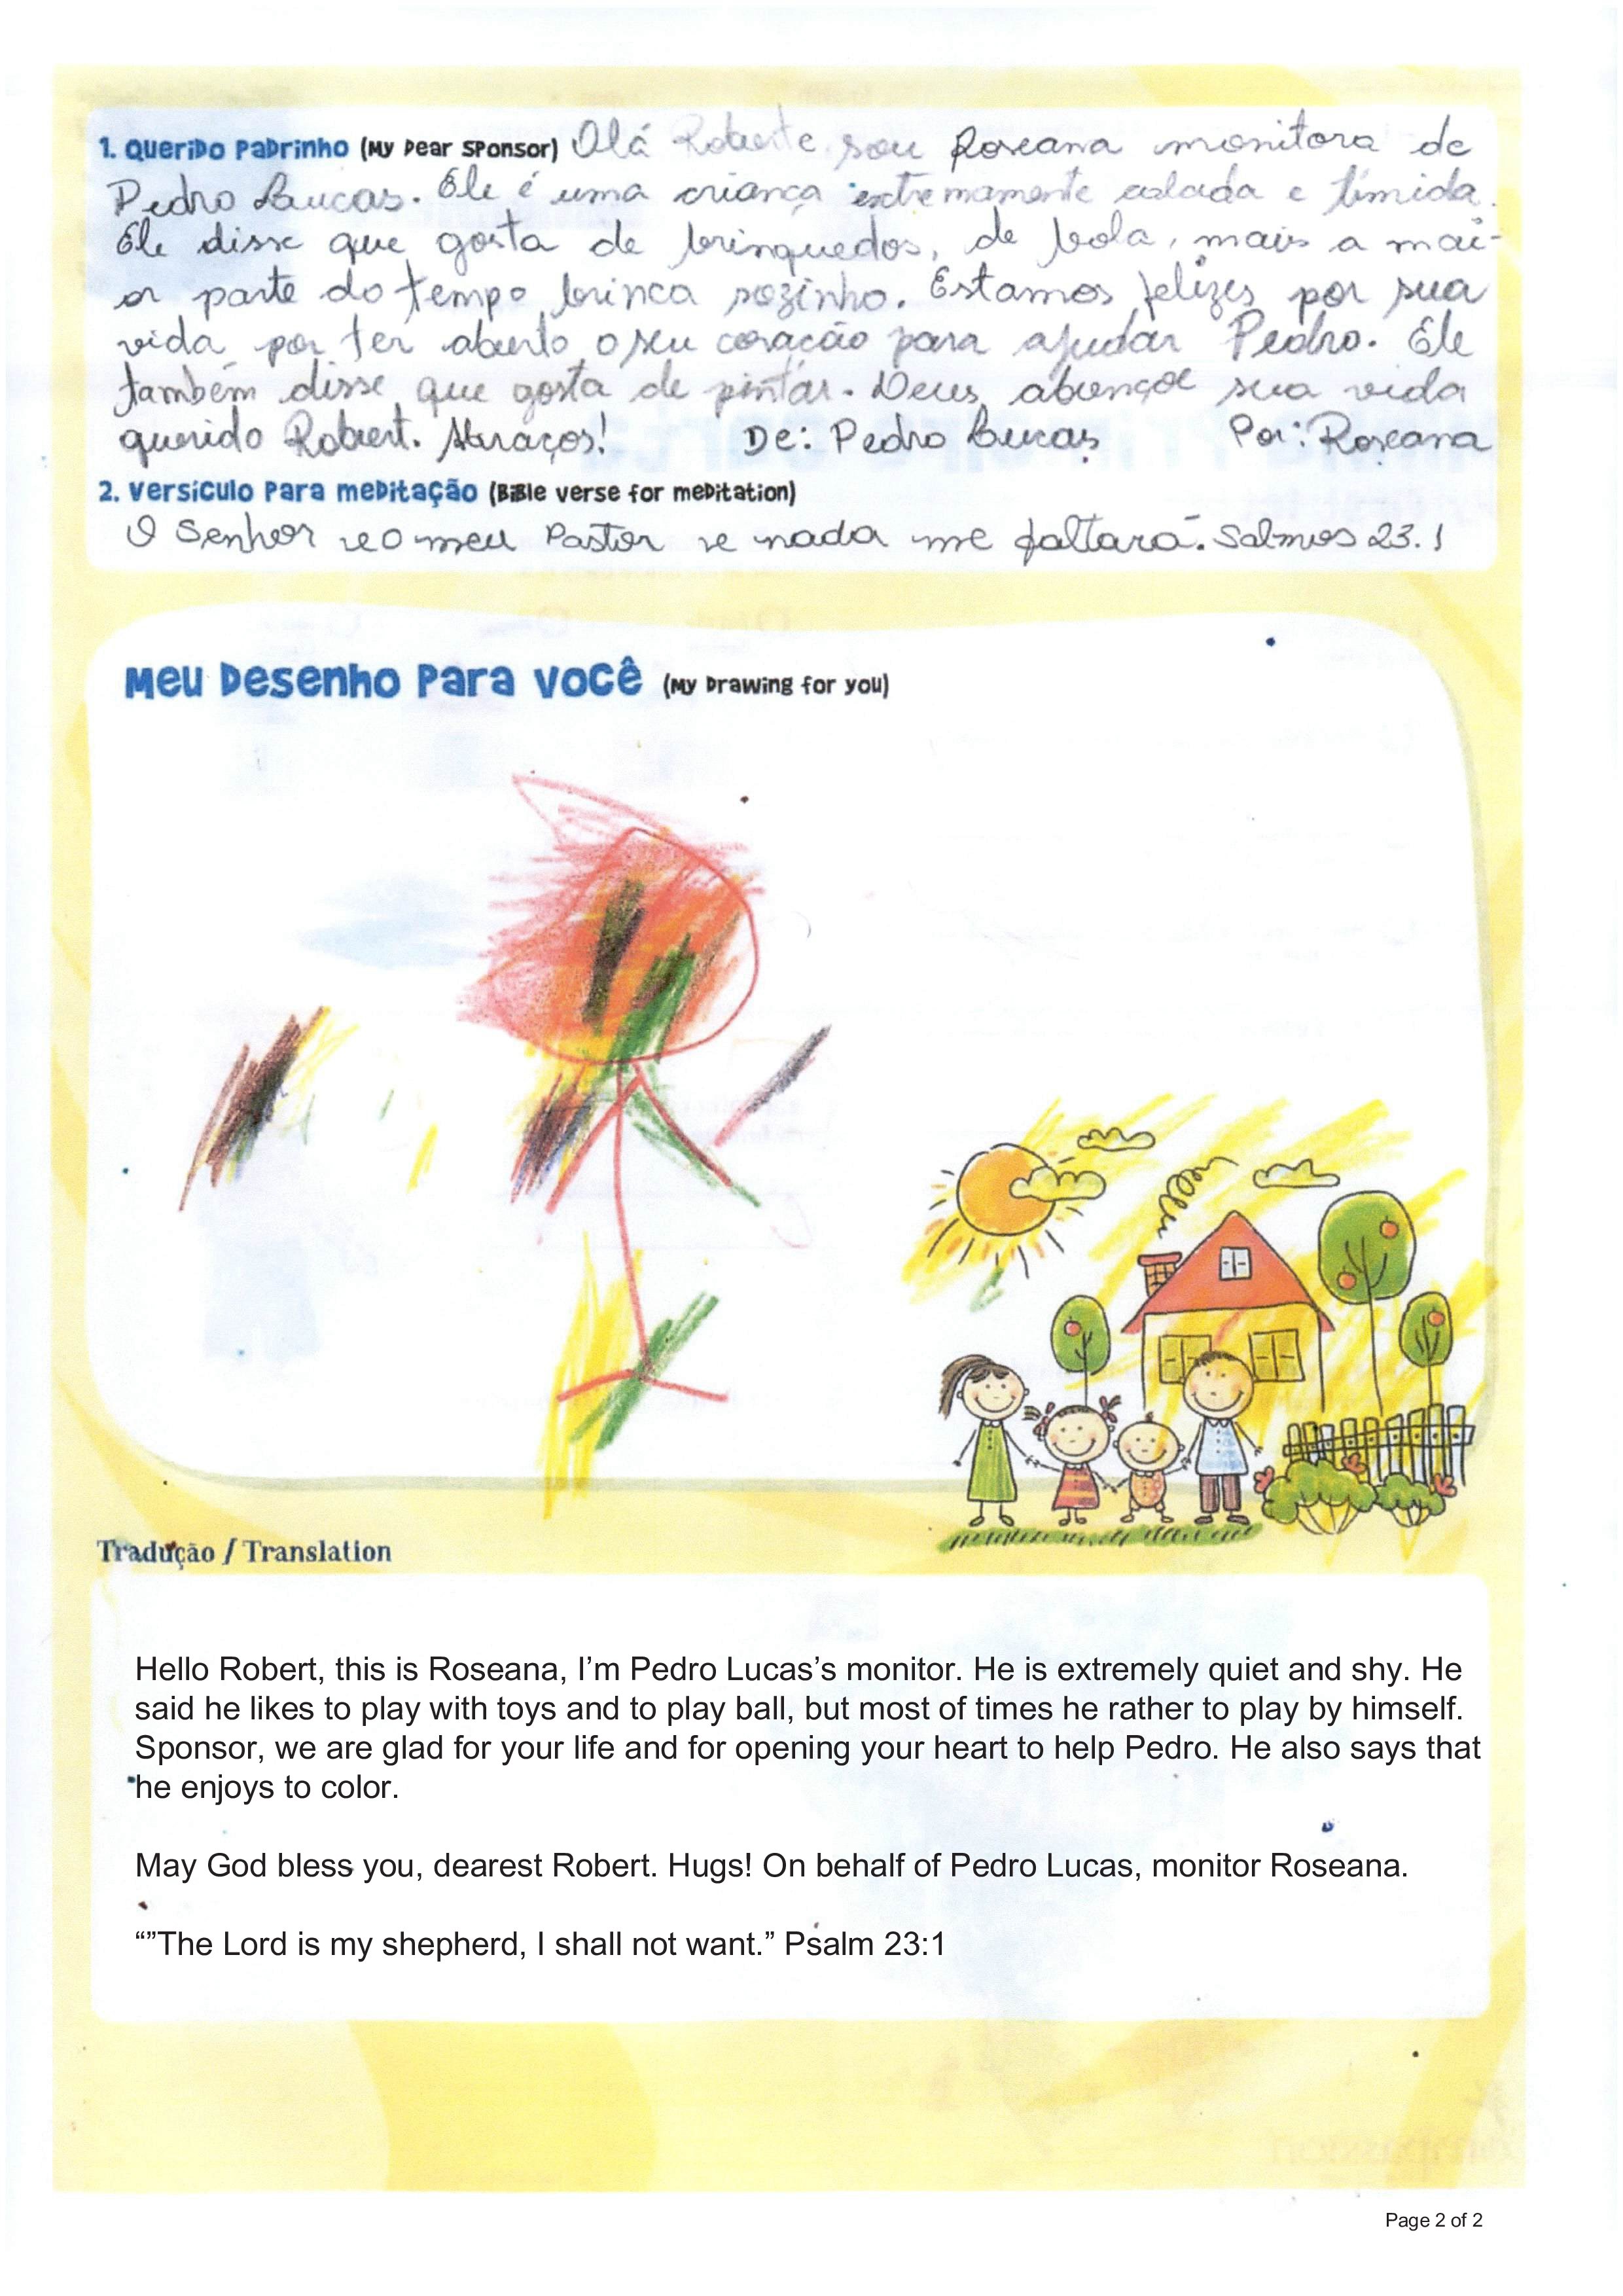 1. Querido Padrinho (My Dear Sponsor) Olá Roberte sou Roseana monitora de
Pedro Lucas. Ele é uma criança extremamente calada e tímida.
Ele disse que gosta de brinquedos, de bola, mais a mai-
or parte do tempo brinca sozinho. Estamos felizes por sua
vida, por ter aberto o seu coração para ajudar Pedro. Ele
também disse que gosta de pintar. Deus abençoe sua vida
querido Robert. Abraços! De: Pedro Lucas Por: Roseana
2. Versículo para meditação (Bible verse for meditation)
O Senhor é o meu Pastor e nada me faltará. Salmos 23.1
Meu Desenho Para Você (My Drawing for you)
Tradução / Translation
Hello Robert, this is Roseana, I’m Pedro Lucas’s monitor. He is extremely quiet and shy. He
said he likes to play with toys and to play ball, but most of times he rather to play by himself.
Sponsor, we are glad for your life and for opening your heart to help Pedro. He also says that
he enjoys to color.
May God bless you, dearest Robert. Hugs! On behalf of Pedro Lucas, monitor Roseana.
“”The Lord is my shepherd, I shall not want.” Psalm 23:1
Page 2 of 2